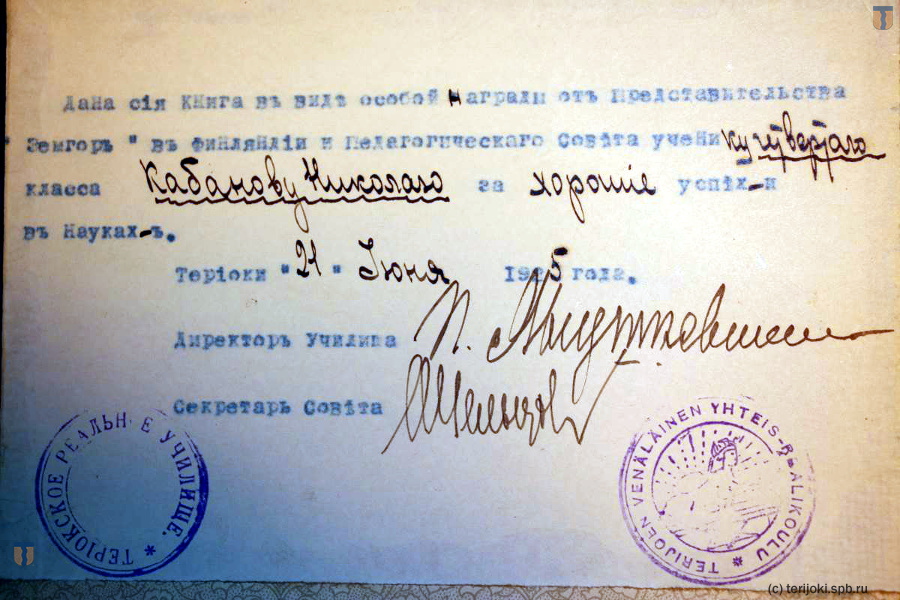 Дана сія книга въ видѣ особой награды отъ Представительства
"Земгоръ" въ Финляндіи и Педагогическаго Совѣта ученику четвертаго
класса Кабанову Николаю за хорошіе успѣх-и
въ Науках-ъ.
Теріоки "21" Іюня 1925 года.
Директоръ Училища П.
Секретарь Совѣта
ТЕРІОКСКОЕ РЕАЛЬНОЕ УЧИЛИЩЕ.
TERIJOEN VENÄLÄINEN YHTEIS-REALIKOULU
(c) terijoki.spb.ru